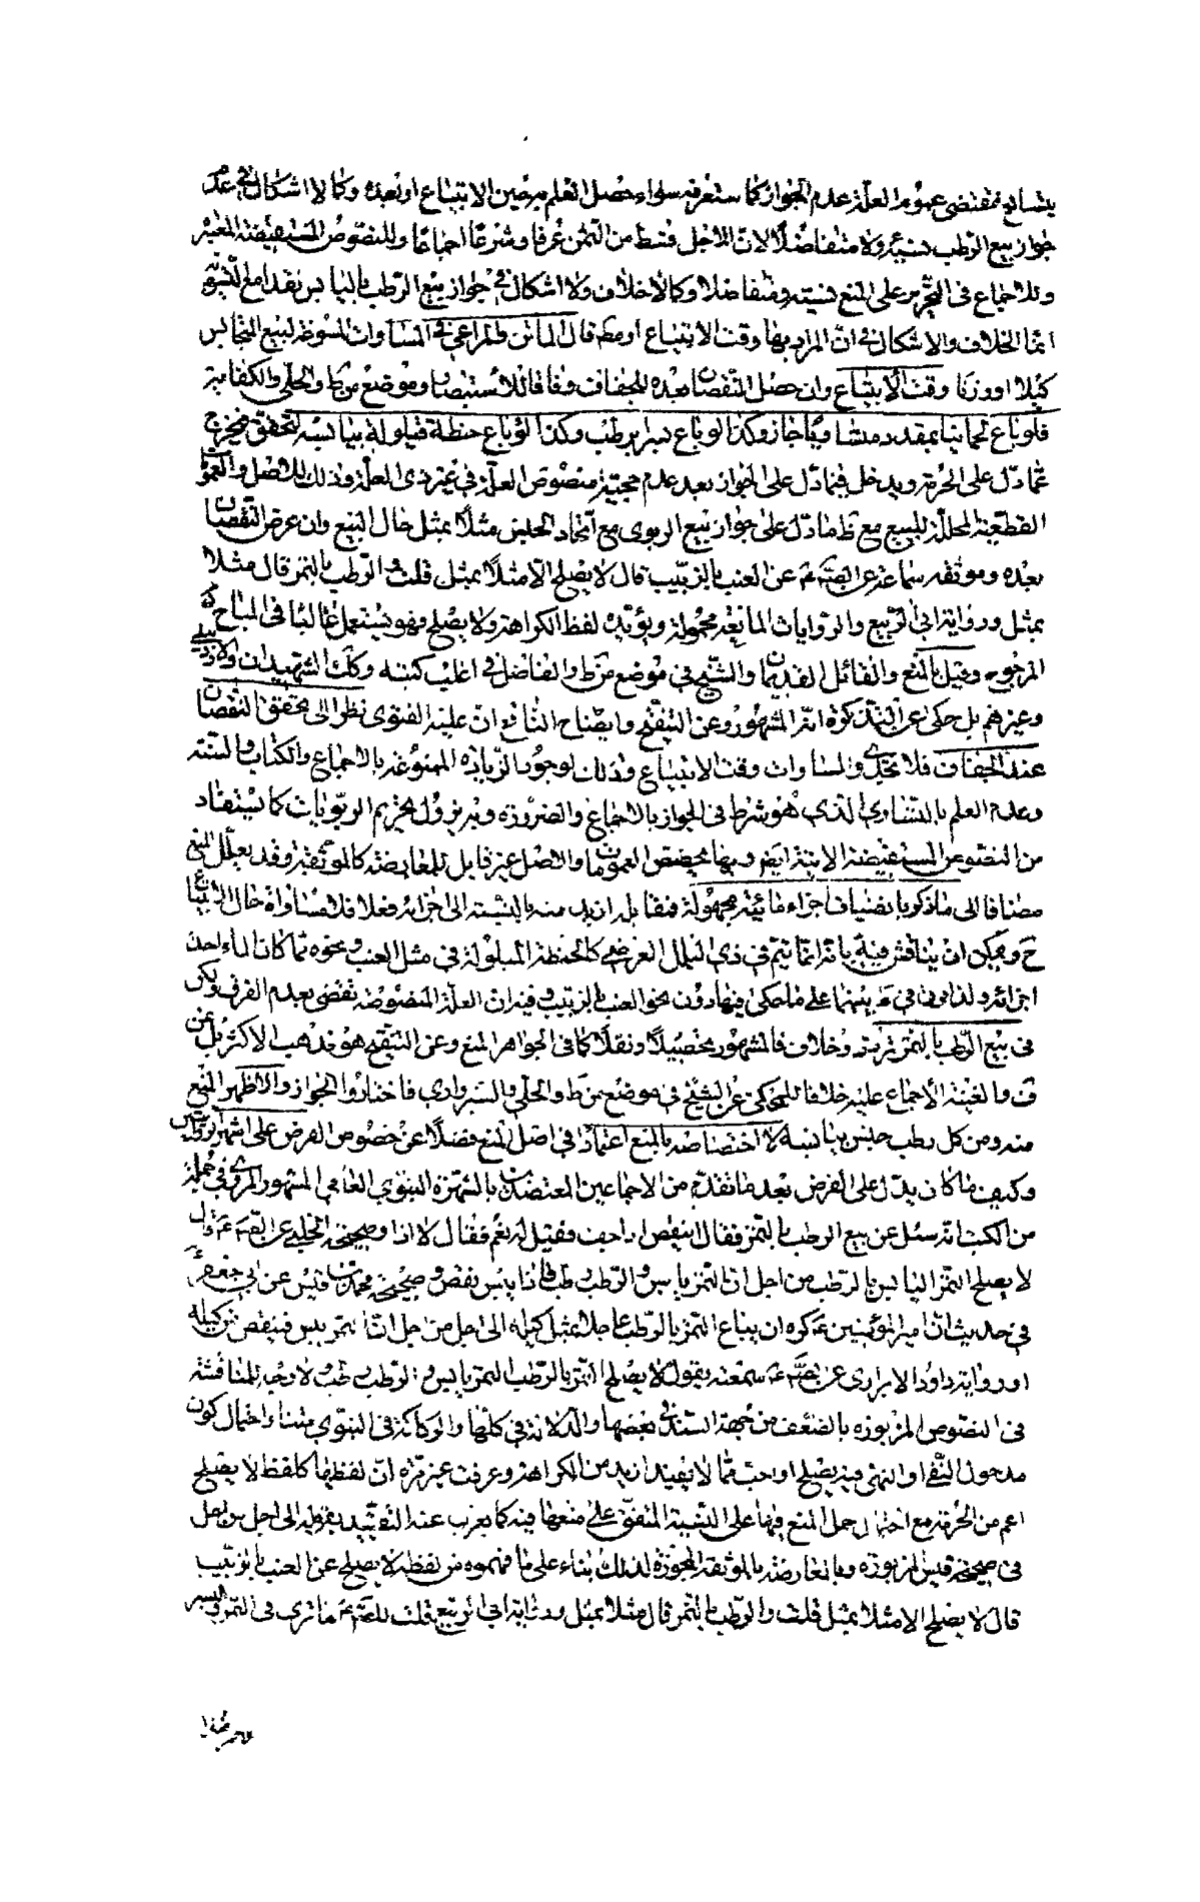 بتسامح مقتضى عموم العلة عدم الجواز كما ستعرفه سواء حصل العلم به حين الابتياع او بعده وكما لا اشكال في عدم
جواز بيع الرطب نسيئة ولا متفاضلا لان للاجل قسط من الثمن عرفا وشرعا اجماعا وللنصوص المستفيضة المعتبرة
وللاجماع في التحرير على المنع نسيئة ومتفاضلا وكما لا خلاف ولا اشكال في جواز بيع الرطب باليابس نقدا مع التسوية
انما الخلاف والاشكال في ان المراد بها وقت الابتياع او مط قال الماتن والمراعى في المساوات المسوغة لبيع المتجانس
كيلا او وزنا وقت الابتياع وان حصل النقصان بعده للجفاف وفاقا للاستبصار وموضع من ط والحلي والكفاية
فلو باع لحما نيا بمقدد متساويا جاز وكذا لو باع بسرا برطب وكذا لو باع حنطة مبلولة بيابسة لتحقق مخرج
عما دل على الحرمة ويدخل فيما دل على الجواز بعد عدم حجية منصوص العلة في غير ذى العلة وذلك للاصل والعموم
القطعية المحللة للبيع مع ظ ما دل على جواز بيع الربوى مع اتحاد الجنس مثلا بمثل حال البيع وان عرض النقصان
بعده وموثقه سماعة عن ابيعبد الله ع عن العنب بالزبيب قال لا يصلح الا مثلا بمثل قلت والرطب بالتمر قال مثلا
بمثل ورواية ابي الربيع والروايات المانعة محمولة ويؤيده لفظ الكراهة ولا يصلح وهو يستعمل غالبا في المباح
المرجوح وقيل بالمنع والقائل القديمان والشيخ في موضع من ط والفاضل في اغلب كتبه وكك الشهيدان
وغيرهم بل حكى عن التذكرة انه المشهور وعن التنقيح وايضاح النافع ان عليه الفتوى نظرا الى تحقق النقصان
عند الجفاف فلا يجدى المساوات وقت الابتياع وذلك لوجود الزيادة الممنوعة بالاجماع والكتاب والسنة
وعدم العلم بالتساوى الذى هو شرط في الجواز بالاجماع والضرورة وبه يؤول تحريم الربويات كما يستفاد
من النصوص المستفيضة الاتية ايضا وبها يخصص العمومات والاصل غير قابل للمعارضة كالموثقة وقد يعلل المنع
مضافا الى ما ذكر بانضياف اجزاء مائية مجهولة فتقابل ازيد منه بالنسبة الى اجزائه فعلا فلا مساواة حال الابتياع
ح ويمكن ان يناقش فيه بانه انما يتم في ذى البلل العرضى كالحنطة المبلولة في مثل العنب ونحوه مما كان الماء احد
اجزائه ولذا بينهما على ما حكى فيها دون نحو العنب بالزبيب وفيه ان العلة المنصوصة تقضى بعدم الفرق ولكن
في بيع الرطب بالتمر وخلاف فالمشهور تحصيلا ونقلا كما في الجواهر المنع وعن التنقيح هو مذهب الاكثر بل عن
ف والغنية الاجماع عليه خلافا للمحكى عن الشيخ في موضع من ط والحلي والسبزواري فاختاروا الجواز والاظهر المنع
منه ومن كل رطب جنس بيابسه لا اختصاصه بالمنع اعتمادا في اصل المنع فضلا عن خصوص الفرض على اشهر الروايتين
وكيف ما كان يدل على الفرض بعد ما تقدم من الاجماعين المعتضدين بالشهرة النبوي العامي المشهور المروي في جملة
من الكتب انه سئل عن بيع الرطب بالتمر فقال اينقص اذا جف فقيل له نعم فقال لا اذا وصحيحة الحلبي عن ابيعبد الله ع قال
لا يصلح التمر اليابس بالرطب من اجل ان التمر يابس والرطب رطب فاذا يبس نقص وصحيحة محمد بن قيس عن ابي جعفر ع
في حديث ان امير المؤمنين ع كره ان يباع التمر بالرطب عاجلا بمثل كيله الى اجل من اجل ان التمر ييبس فينقص من كيله
ورواية داود الابزارى عن ابيعبد الله ع سمعته يقول لا يصلح التمر بالرطب التمر يابس والرطب رطب لا وجه للمناقشة
في النصوص المزبورة بالضعف من جهة السند في بعضها والدلالة في كلها والركاكة في النبوي متنا واحتمال كون
مدخول النفى او النهى فيه يصلح او احب مما لا يفيد ازيد من الكراهة وعرفت غير مرة ان لفظها كلفظ لا يصلح
اعم من الحرمة مع احتمال حمل المنع فيها على النسيئة المتفق على منعها فيه كما يعرب عنه التقييد بقوله الى اجل من اجل
في صحيحة قيس المزبورة وبالمعارضة بالموثقة المجوزة لذلك بناء على ما فهموه من لفظة لا يصلح عن العنب بالزبيب
قال لا يصلح الا مثلا بمثل قلت والرطب بالتمر قال مثلا بمثل ورواية ابي الربيع قلت للصادق ع ما ترى في التمر والبسر